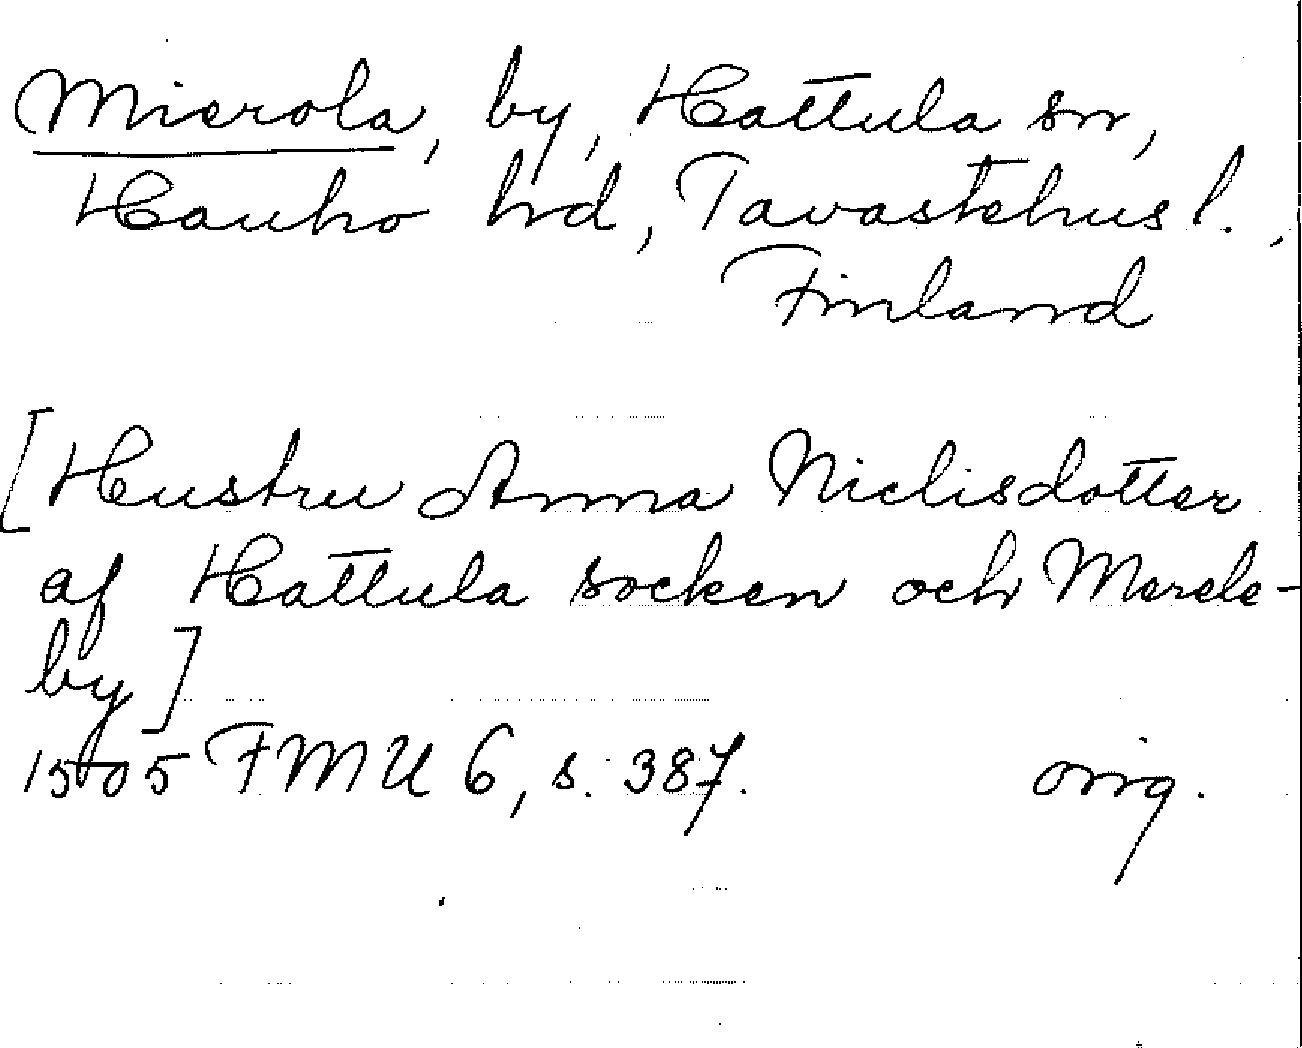 Mierola, by, Hattula sn,
Hauho hrd, Tavastehus l.,
Finland
[Hustru Anna Niclisdotter
af Hattula socken och Merele-
by]
1505 FMU 6, s. 387. orig.